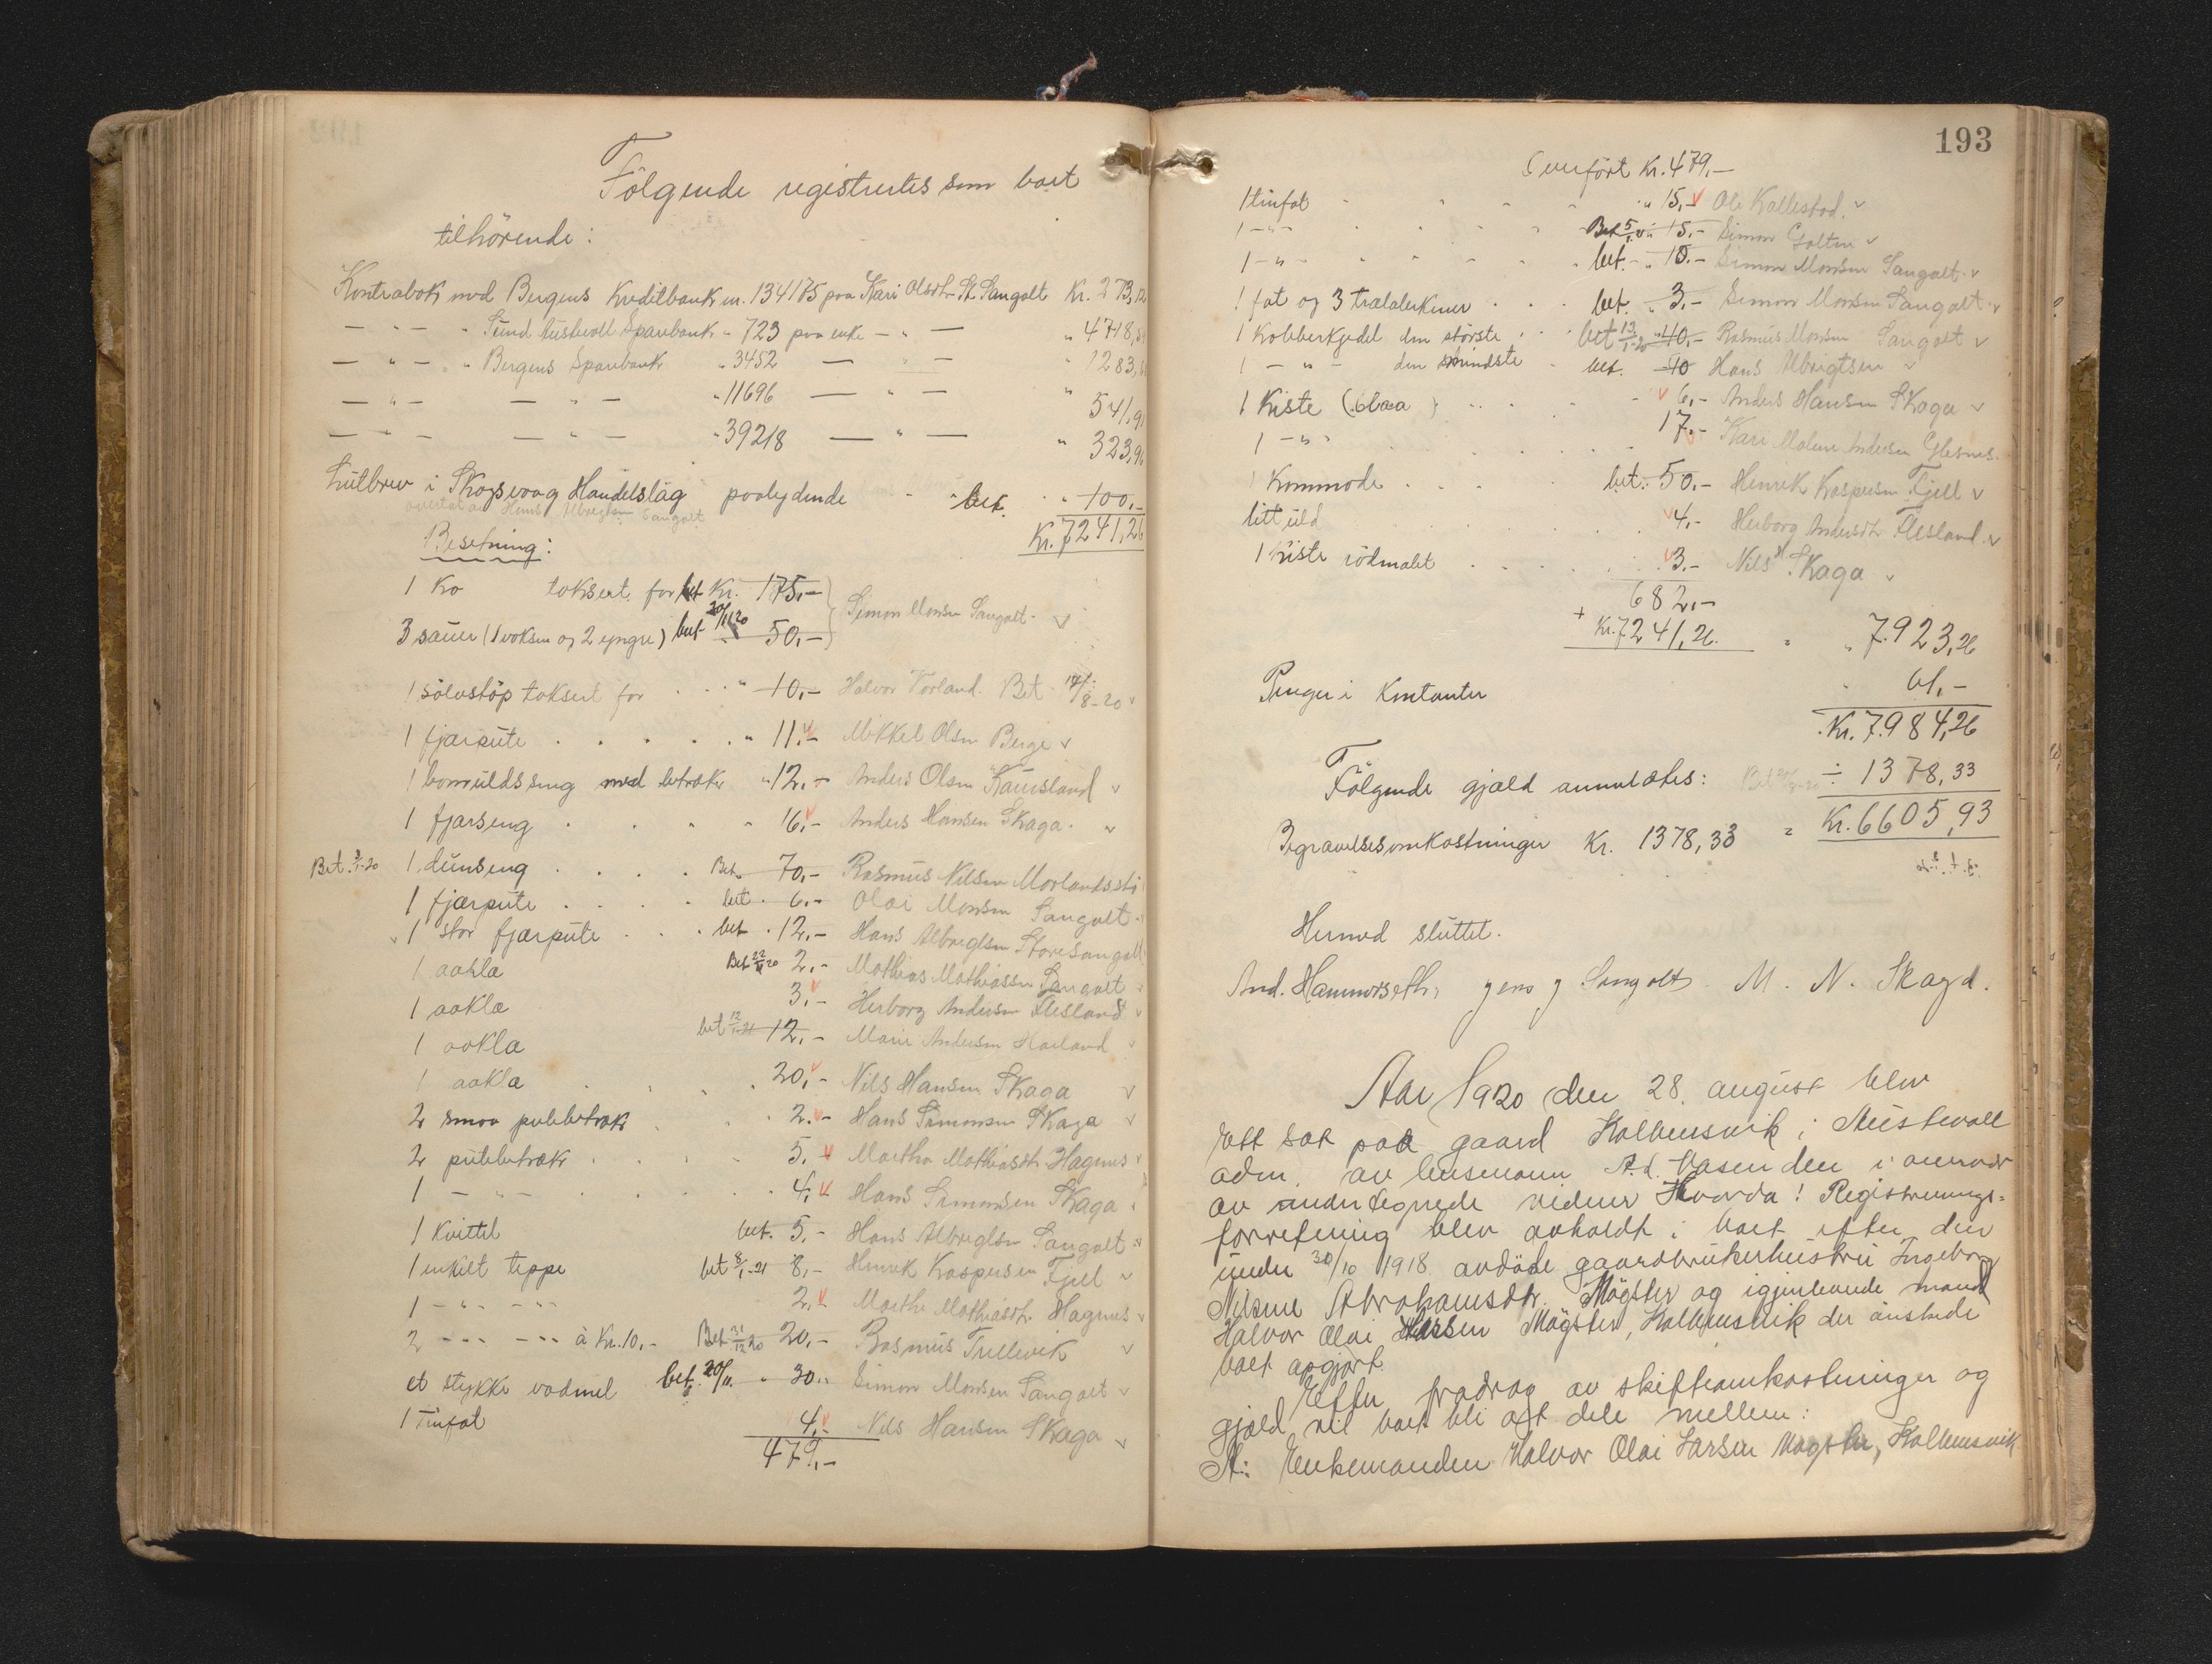 Følgende registrertes som boet
tilhörende:
Kontrabok med Bergens Kreditbank nr. 134175 paa Kari Olsdtr St. Sangolt Kr. 273,
— " — " Sund Austevoll Sparebank " 723 paa enke — " — " 4718,
— " — " Bergens Sparebank " 3452 — " — " 1283,
— " — — " — " 11696 — " — " 541,9
— " — — " — " 39218 — " — " 323,96
Lutbrev i Skogsvaag Handelslag paalydende bet. " 100,-
overtat av Hans Albregtsen Sangolt Kr. 7241,26
Besetning:
1 Ko taksert for bet Kr. 175,- Simon Monsen Sangolt v
3 sauer (1 voksen og 2 yngre) bet 20/11 20 50,-
1 sölvstöp taksert for " 10,- Halvor Vorland. Bet 14/8-20 v
1 fjærpute " 11,- Mikkel Olsen Berge v
1 bomuldsseng med betræk " 12,- Anders Olsen Kausland v
1 fjærseng " 16,- Anders Hansen Skaga v
Bet. 3/1-20 1 dunseng Bet. 70,- Rasmus Nilsen Morlandsstö
1 fjærpute bet. 6,- Olai Monsen Sangolt
1 stor fjærpute bet. 12,- Hans Albregtsen Store Sangolt
1 aakla Bet 22/11 20 2,- Mathias Mathiassen Sangolt
1 aakla 3,- Herborg Andersen Flesland v
1 aakla bet 12/1-21 12,- Marie Andersen
1 aakla 20,- Nils Hansen Skaga v
2 smaa putebetræk 2,- Hans Simonsen Skaga v
2 putebetræk 5,- Martha Mathiasdtr Hagnes v
1 — " — 4,- Hans Simonsen Skaga
1 Kvittel bet. 5,- Hans Albregtsen Sangolt v
1 enkelt teppe bet 8/1-21 8,- Henrik Kaspersen Fjell v
1 — " — 2,- Marthe Mathiasdtr. Hagnes v
2 — " — à Kr. 10,- Bet 31/12 20 20,- Rasmus Trellevik v
et stykke vadmel bet. 20/11. " 30,- Simon Monsen Sangolt v
1 Tinfat 4,- Nils Hansen Skaga v
479,-
193
Overfört Kr. 479,-
1 tinfat " 15,- Ole Kallestad. v
1 — " — Bet 5/1 15,- Simon Golten v
1 — " — bet. " 10,- Simon Monsen Sangolt v
1 fat og 3 trætalerkener bet. " 3,- Simon Monsen Sangolt v
1 Kobberkjedel den störste bet 13/1-20 " 40,- Rasmus Monsen Sangolt v
1 — " — den mindste bet. 40 Hans Albrigtsen v
1 Kiste (blaa) 6,- Anders Hansen Skaga v
1 — " — 17,- Kari Malene Andersen Glesnes.
1 Kommode bet. 50,- Henrik Kaspersen Fjell v
litt uld 4,- Herborg Andersdtr Flesland. v
1 Kiste rödmalt 3,- Nils H. Skaga v
682,-
+ Kr. 7241,26. " 7.923,26
Penger i Kontanter 61,-
Kr. 7.984,26
Følgende gjæld anmeldtes: Bet ÷ 1378,33
Begravelsesomkostninger Kr. 1378,33 = Kr. 6605,93
Hermed sluttet.
And. Hammerseth, Jens J Sangolt M. N. Skaga.
Aar 1920 den 28. august blev
rett sat paa gaard Kolbensvik i Austevoll
adm. av lensmann A.d. Vasenden i overvær
av undertegnede vidner Hvorda! Registrerings-
forretning blev avholdt i boet efter den
under 30/10 1918 avdöde gaardbrukerhustru Ingeborg
Nilsine Abrahamsdtr. Mögster og igjenlevende mand
Halvor Olai Larsen Mögster, Kolbensvik der önskede
boet opgjort.
Efter fradrag av skifteomkostninger og
gjæld vil boet bli at dele mellem:
A: Enkemanden Halvor Olai Larsen Mögster, Kolbensvik